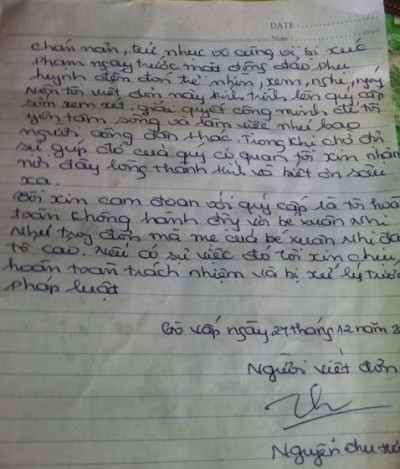 DATE:
Note:
chán nản, tủi nhục vô cùng vì bị xúc
phạm ngay trước mặt đông đảo phụ
huynh đến đón trẻ nhìn, xem, nghe,
Nên tôi viết đơn này kính trình lên quý cấp
xem xét. giải quyết công minh để tôi
yên tâm sống và làm việc như bao
người công dân khác. Trong khi chờ đợi
sự giúp đỡ của quý cơ quan tôi xin nhận
nơi đây lòng thành kính và biết ơn sâu
xa.
Tôi xin cam đoan với quý cấp là tôi hoàn
toàn không hành động với bé Xuân Nhi
như trong đơn mà mẹ của bé Xuân Nhi đã
tố cáo. Nếu có sự việc đó tôi xin chịu
hoàn toàn trách nhiệm và bị xử lý trước
pháp luật
Gò Vấp ngày 27 tháng 12 năm
Người viết đơn
Nguyễn